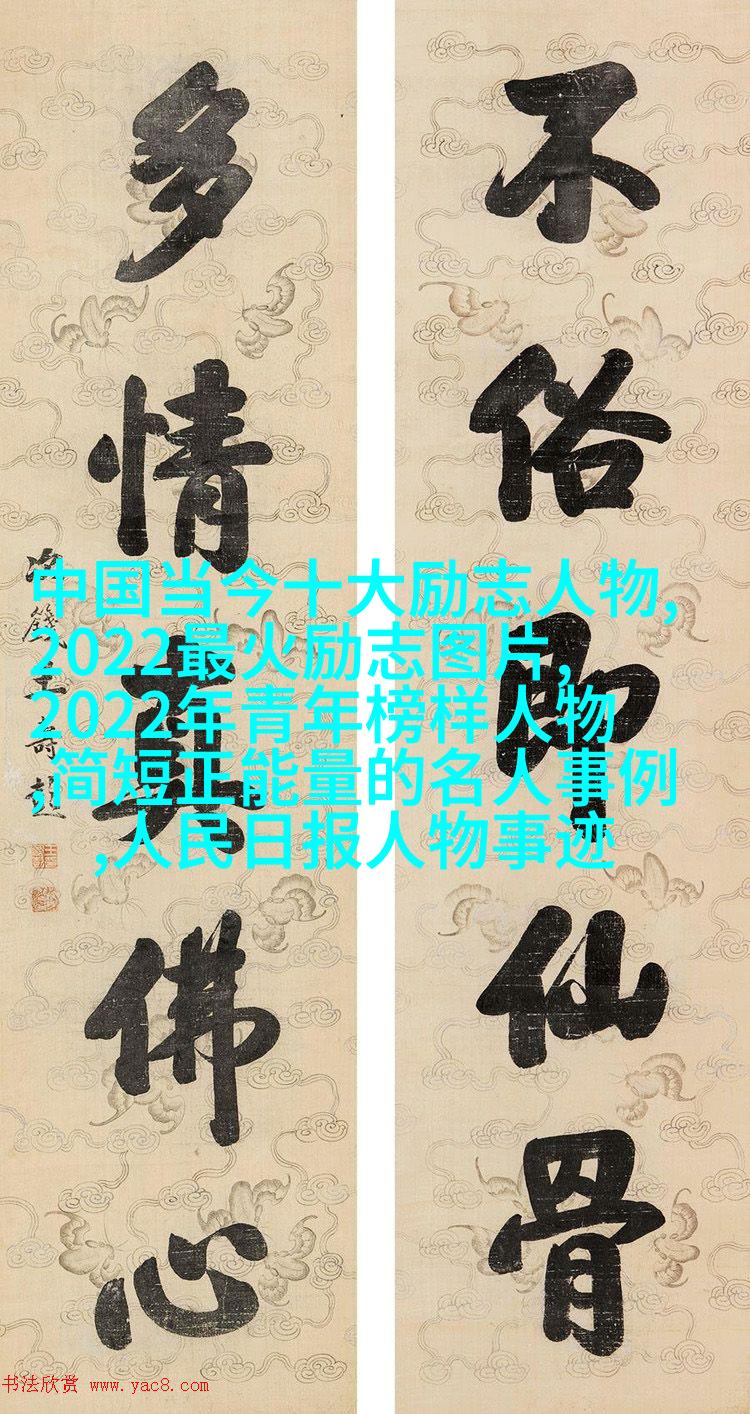 不俗即仙骨
多情真佛心
次籛王壽彭
中国当今十大励志人物,
2022最火励志图片,
2022年青年榜样人物
,简短正能量的名人事例
,人民日报人物事迹
书法欣赏 www.yac8.com